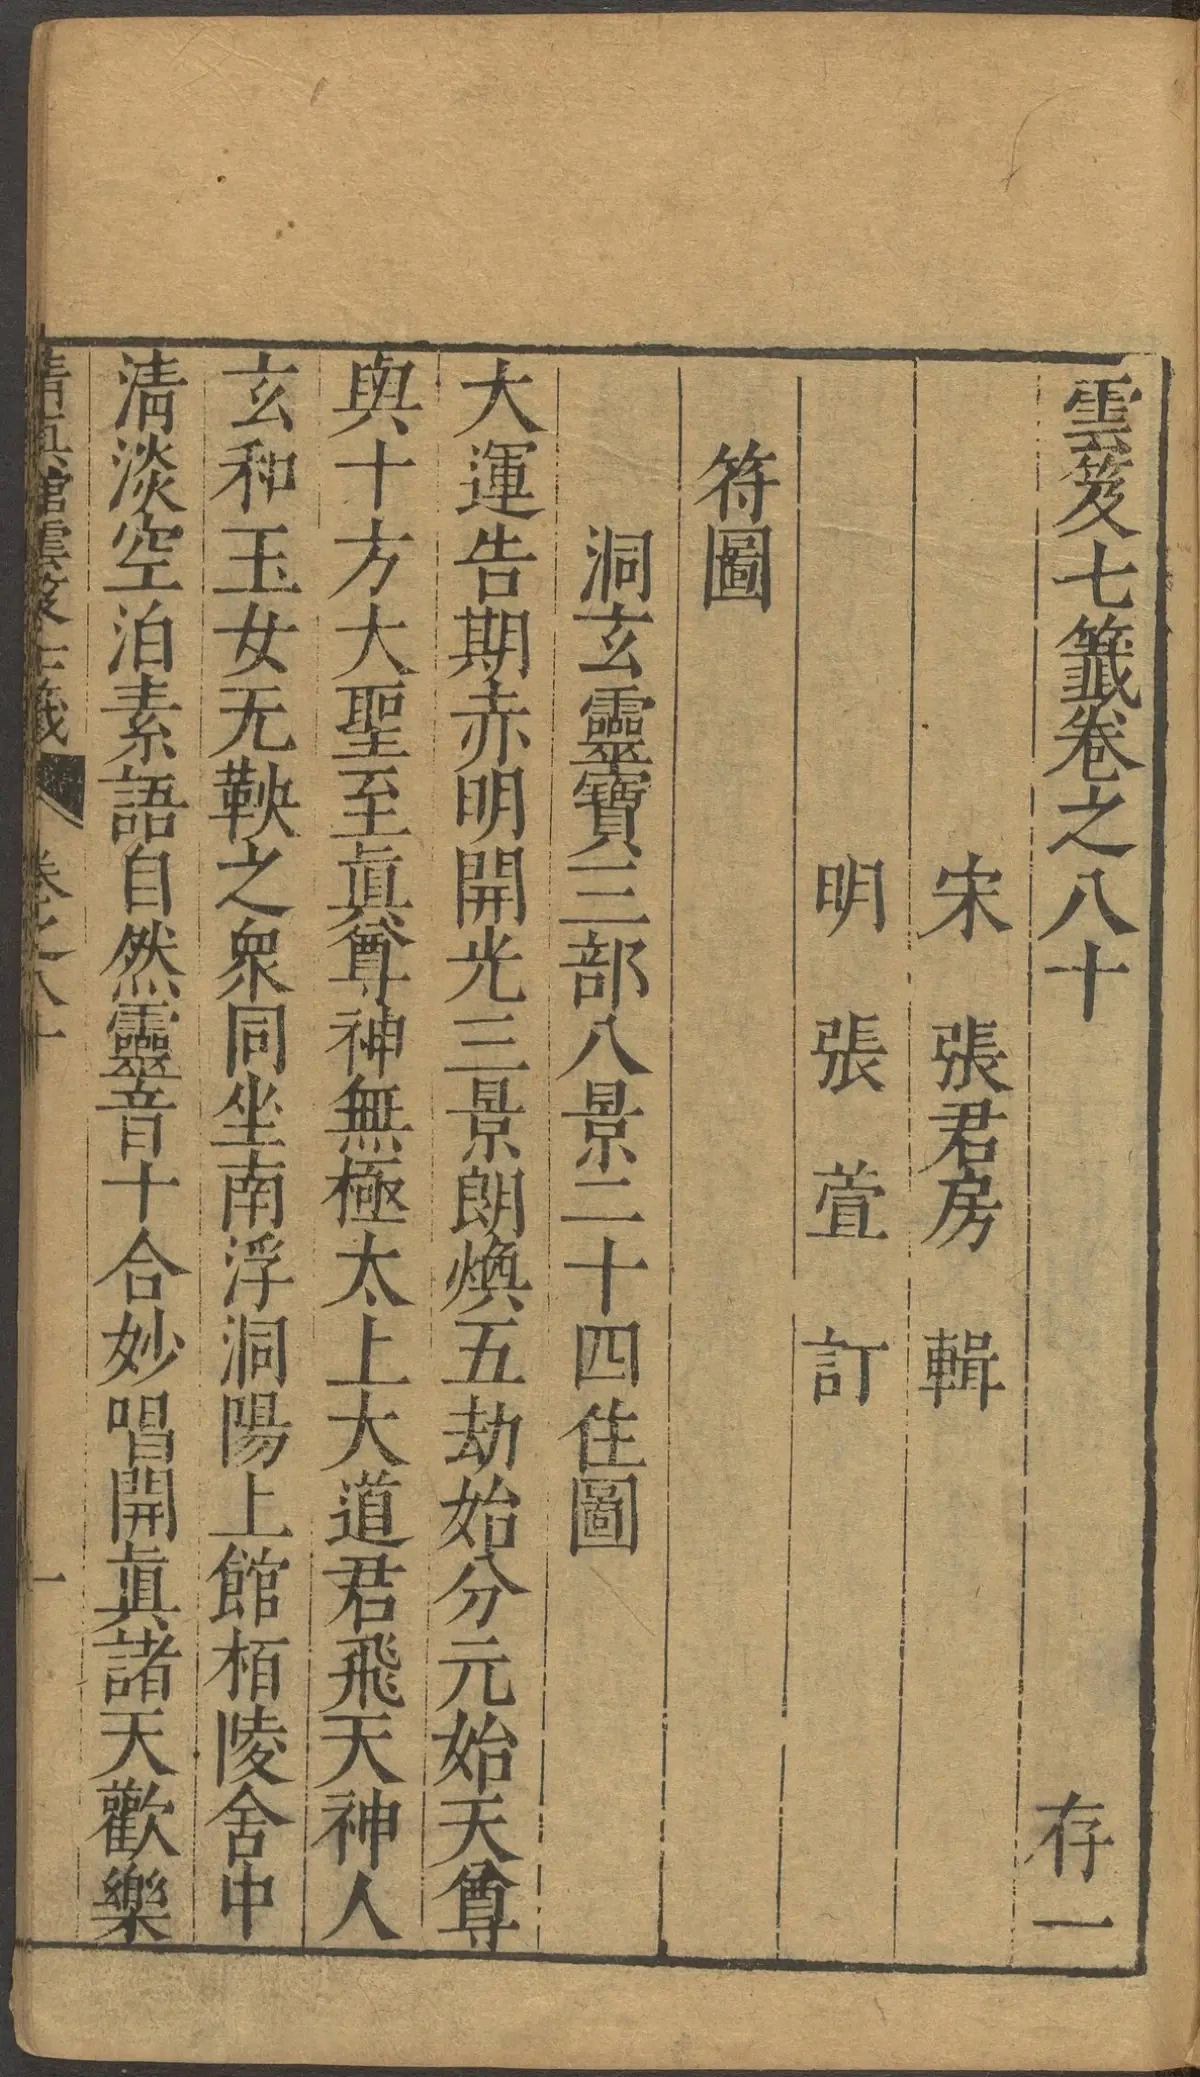 雲笈七籤卷之八十 存一
宋 張君房 輯
明 張萱 訂
符圖
洞玄靈寶三部八景二十四住圖
大運告期赤明開光三景朗煥五劫始分元始天尊
與十方大聖至眞尊神無極太上大道君飛天神人
玄和玉女无鞅之衆同坐南浮洞陽上館栢陵舍中
清淡空泊素語自然靈音十合妙唱開眞諸天歡樂
清眞館雲笈七籤 卷之八十 一